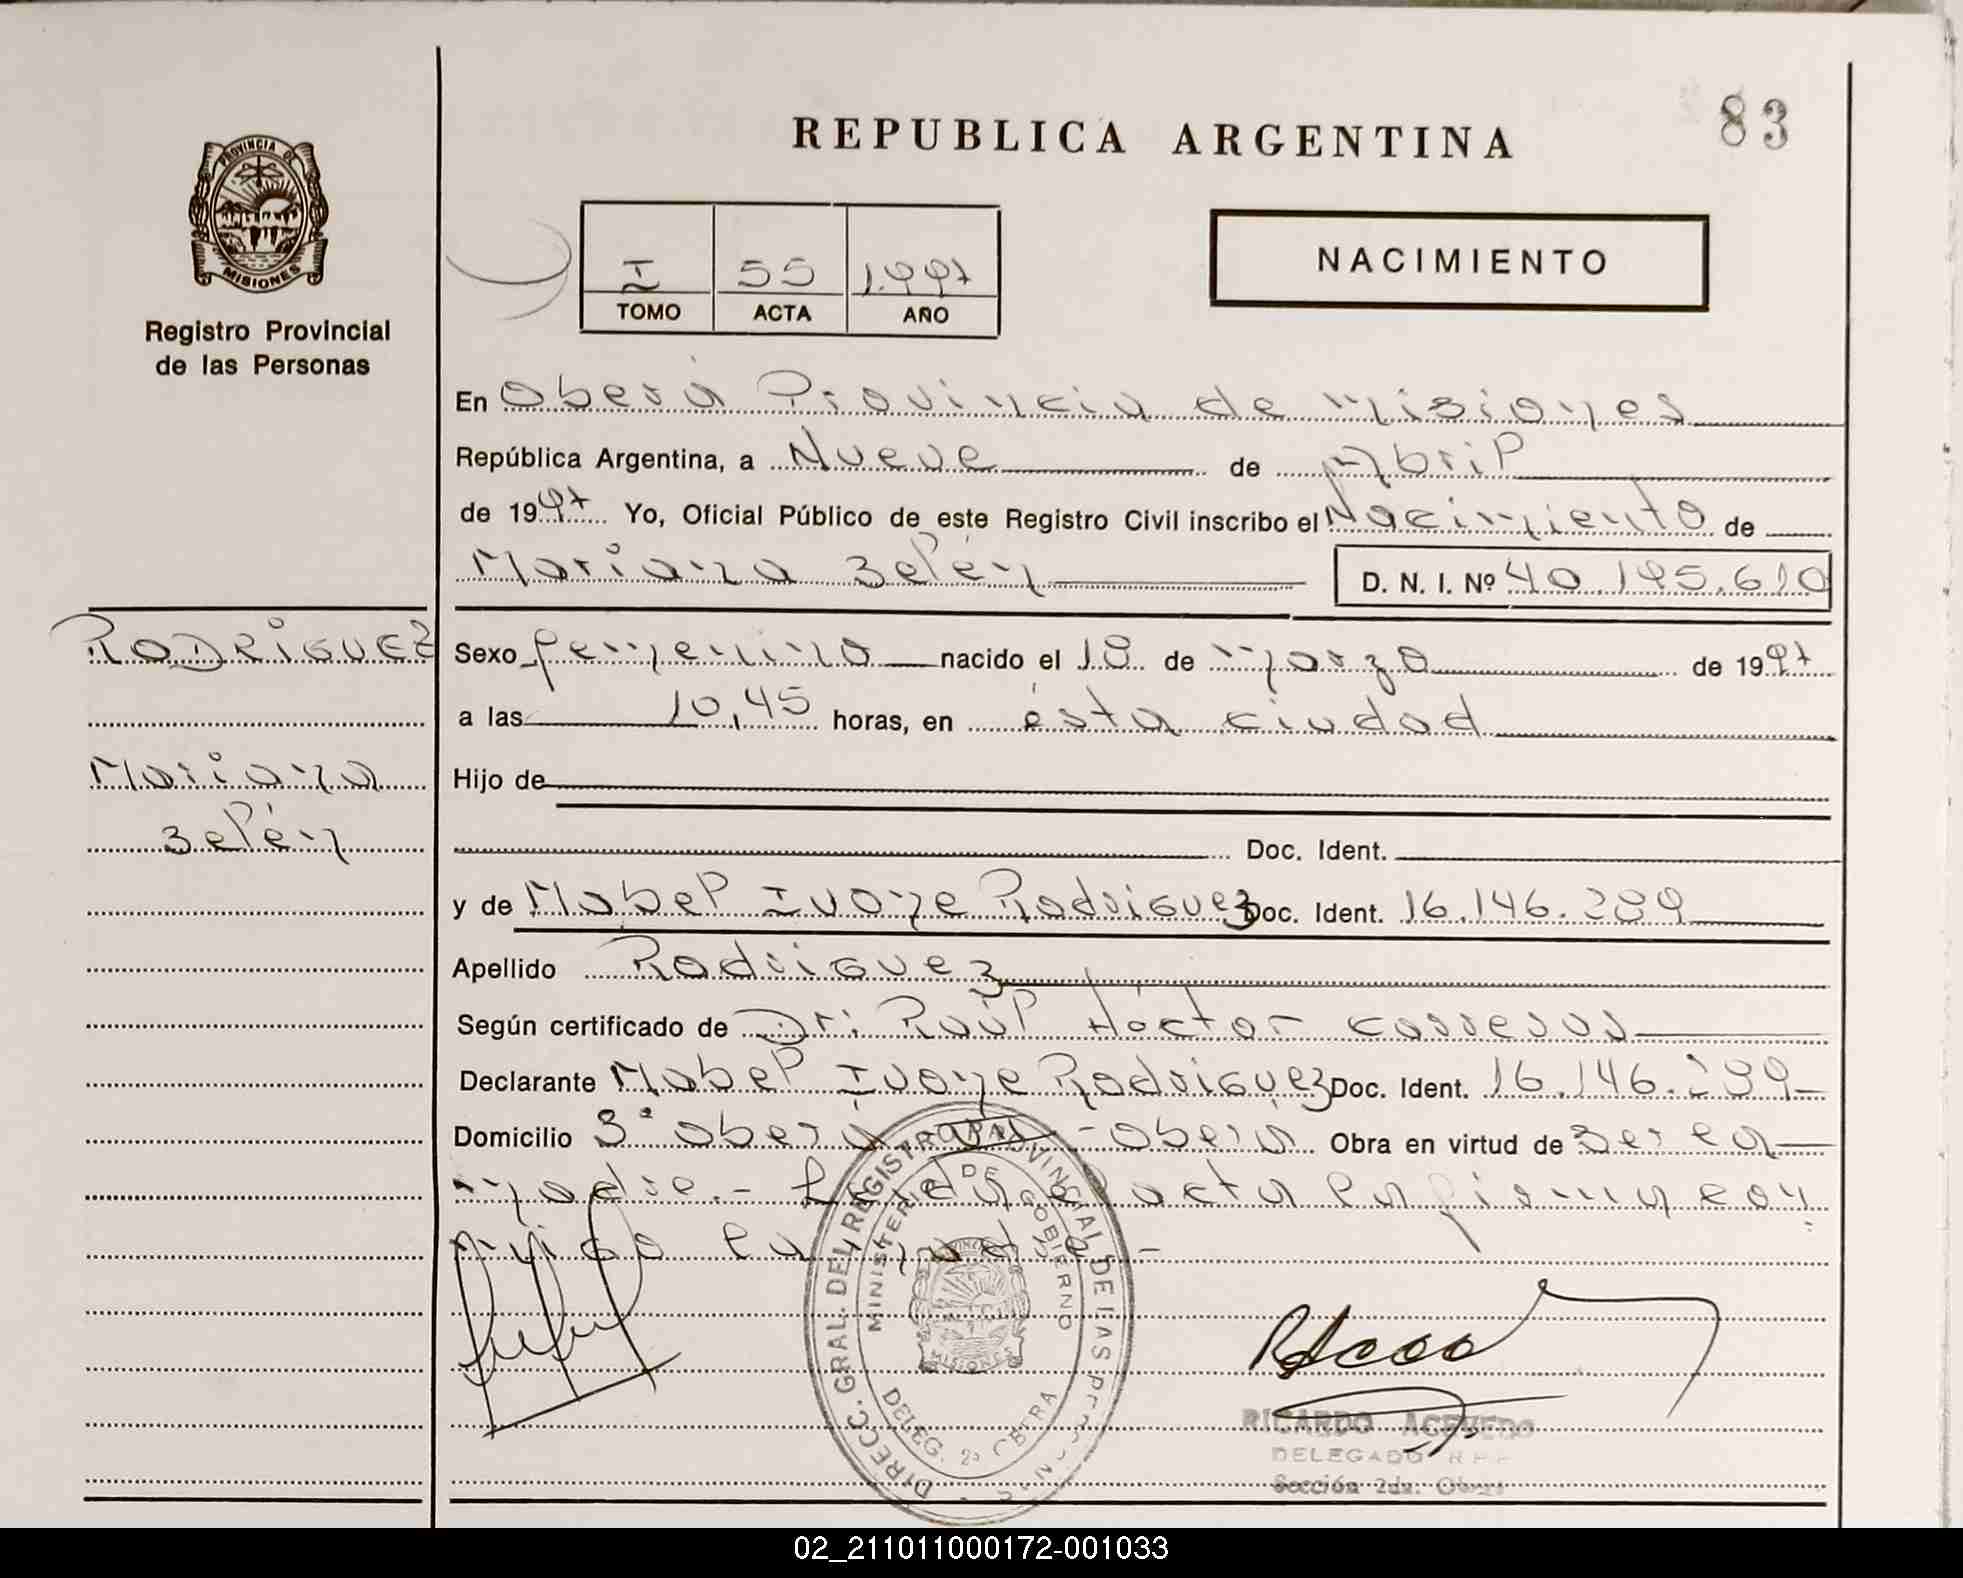 83
REPUBLICA ARGENTINA
PROVINCIA DE
MISIONES
Registro Provincial
de las Personas
I 55 1.997
TOMO ACTA AÑO
NACIMIENTO
En Oberá Provincia de Misiones
República Argentina, a Nueve de Abril
de 1997 Yo, Oficial Público de este Registro Civil inscribo el Nacimiento de
Mariana Belén D. N. I. Nº 40.195.610
RODRIGUEZ
Mariana
Belén
Sexo femenino nacido el 18 de marzo de 1997
a las 10,45 horas, en ésta ciudad
Hijo de
Doc. Ident.
y de Mabel Ivone Rodriguez Doc. Ident. 16.146.289
Apellido Rodriguez
Según certificado de Dr: Raúl Héctor
Declarante Mabel Ivone Rodriguez Doc. Ident. 16.146.289
Domicilio 3° Oberá - Oberá Obra en virtud de Ser la
madre.- Leida acta la firma con-
migo la madre.-
DIRECC. GRAL. DEL REGISTRO PROVINCIAL DE LAS PERSONAS
MINISTERIO DE GOBIERNO
MISIONES
DELEG. 2ª OBERA
RICARDO ACEVEDO
DELEGADO R P P
Sección 2da. Oberá
02_211011000172-001033